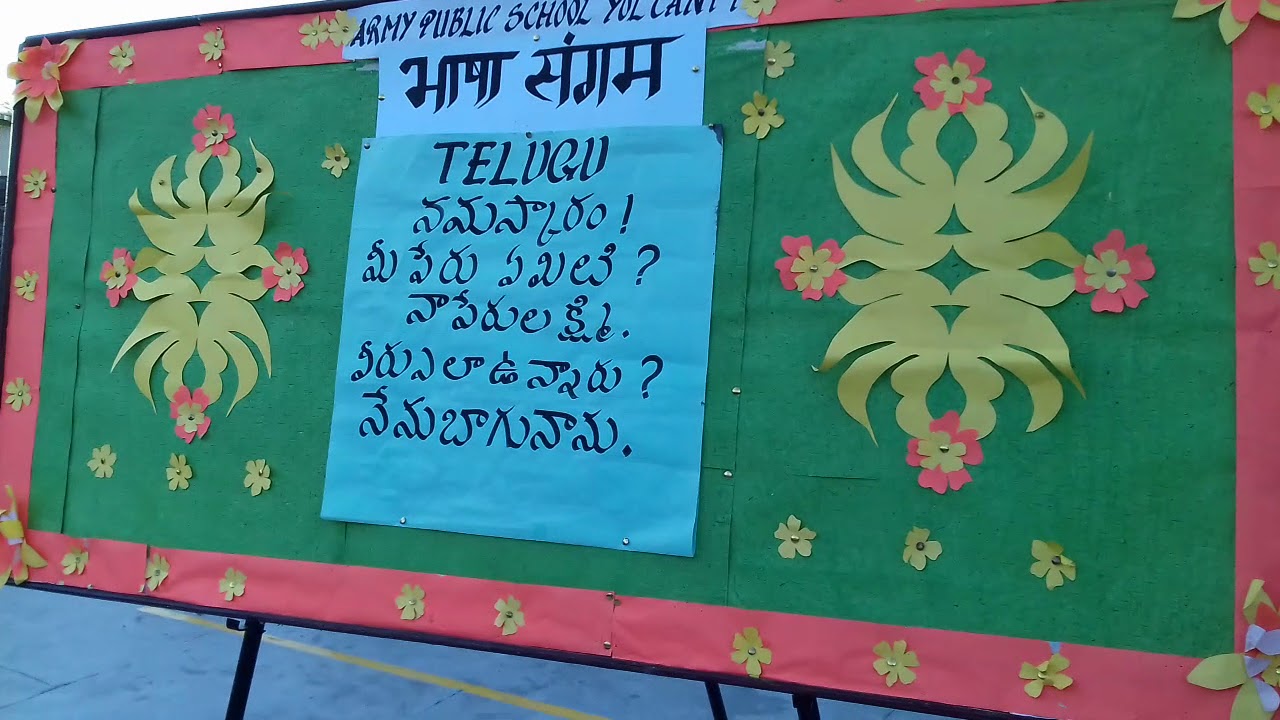 ARMY PUBLIC SCHOOL YOL CANTT
भाषा संगम
TELUGU
నమస్కారం!
మీ పేరు ఏమిటి?
నా పేరు లక్ష్మి.
వీరు ఎలా ఉన్నారు?
నేను బాగునాను.